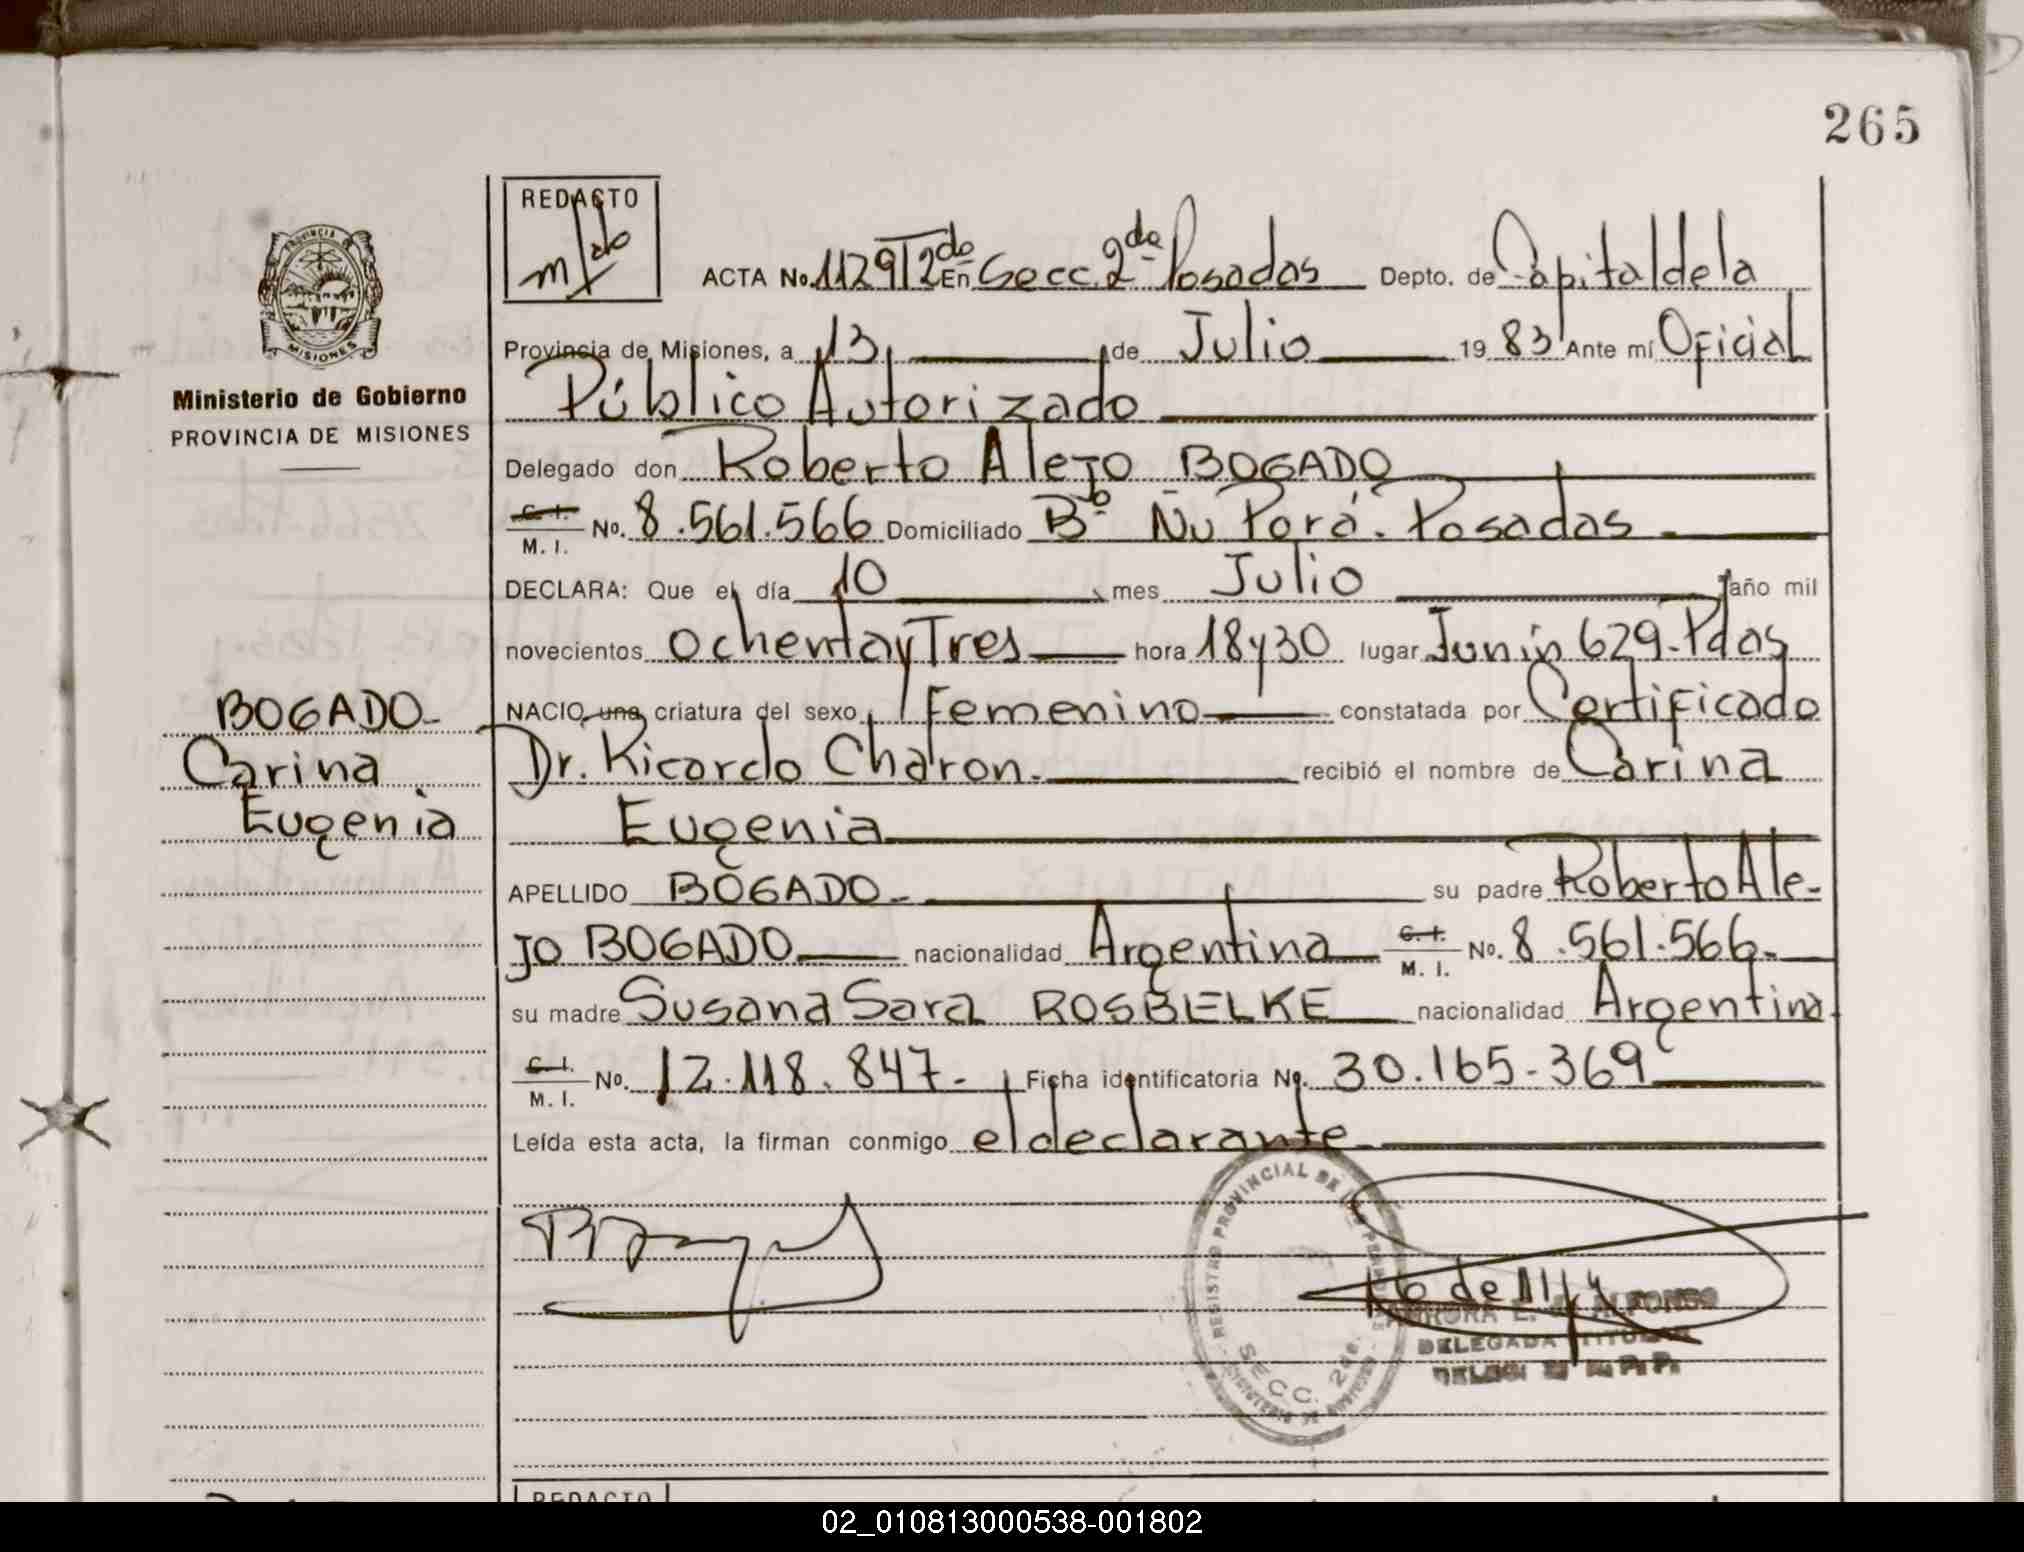 265
REDACTO
PROVINCIA DE
MISIONES
Ministerio de Gobierno
PROVINCIA DE MISIONES
ACTA No. 1129 T 2do En Secc. 2da Posadas Depto. de Capital de la
Provincia de Misiones, a 13 de Julio 1983 Ante mí Oficial
Público Autorizado
Delegado don Roberto Alejo BOGADO
C. I.
M. I. No. 8.561.566 Domiciliado Bº Ñu Porá. Posadas
DECLARA: Que el día 10 mes Julio año mil
novecientos ochenta y Tres hora 18 y 30 lugar Junín 629. Pdas
NACIO una criatura del sexo Femenino constatada por Certificado
Dr. Ricardo Charon. recibió el nombre de Carina
Eugenia
APELLIDO BOGADO su padre Roberto Ale-
jo BOGADO nacionalidad Argentina C. I.
M. I. No. 8.561.566.
su madre Susana Sara ROSBIELKE nacionalidad Argentina
C. I.
M. I. No. 12.118.847. Ficha identificatoria No. 30.165.369
Leída esta acta, la firman conmigo el declarante
BOGADO
Carina
Eugenia
REGISTRO PROVINCIAL DE LAS PERSONAS
SECC. 2da.
ALFONSO
DELEGADA TITULAR
REDACTO
02_010813000538-001802